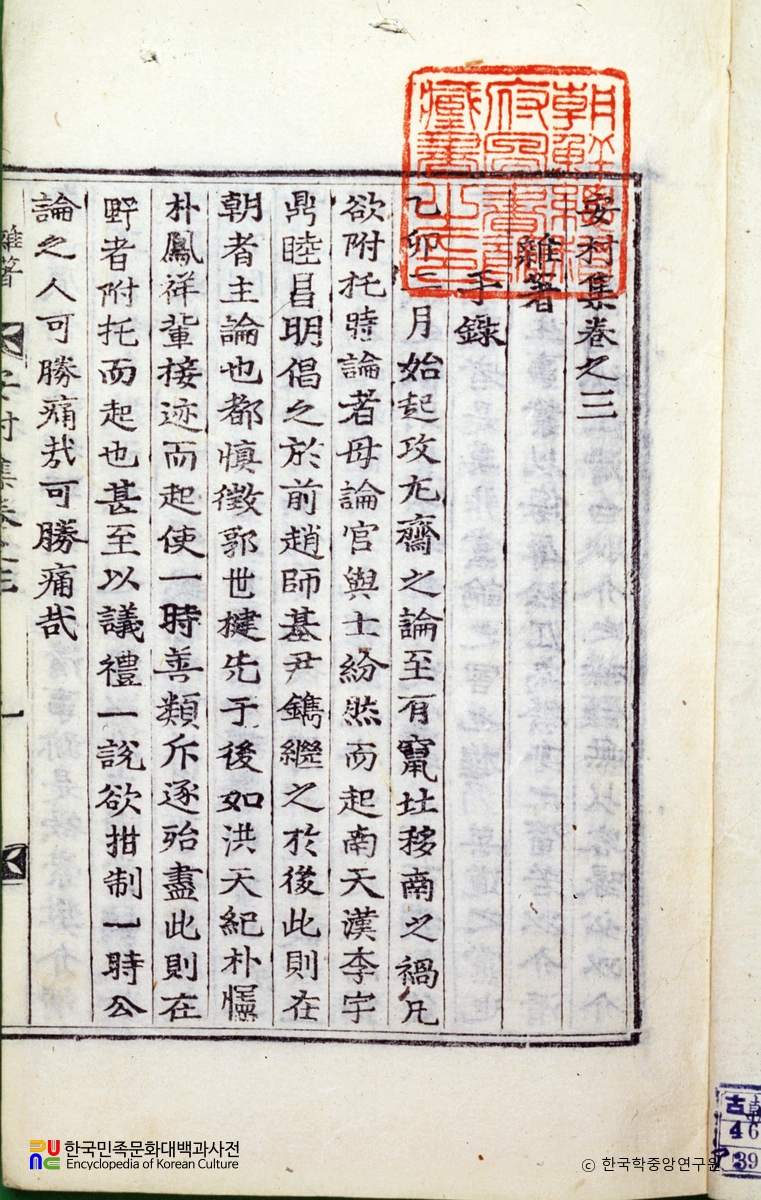 朝鮮總督
府圖書館
藏書之印
安村集卷之三
雜著
手錄
乙卯二月始起攻尤齋之論至有竄北移南之禍凡
欲附托時論者毋論官與士紛然而起南天漢李宇
鼎睦昌明倡之於前趙師基尹鑴繼之於後此則在
朝者主論也都愼徵郭世楗先于後如洪天紀朴
朴鳳祥軰接迹而起使一時善類斥逐殆盡此則在
野者附托而起也甚至以議禮一說欲拑制一時公
論之人可勝痛哉可勝痛哉
雜著
安村集卷之三
一
古朝
46
39
한국민족문화대백과사전
Encyclopedia of Korean Culture
© 한국학중앙연구원